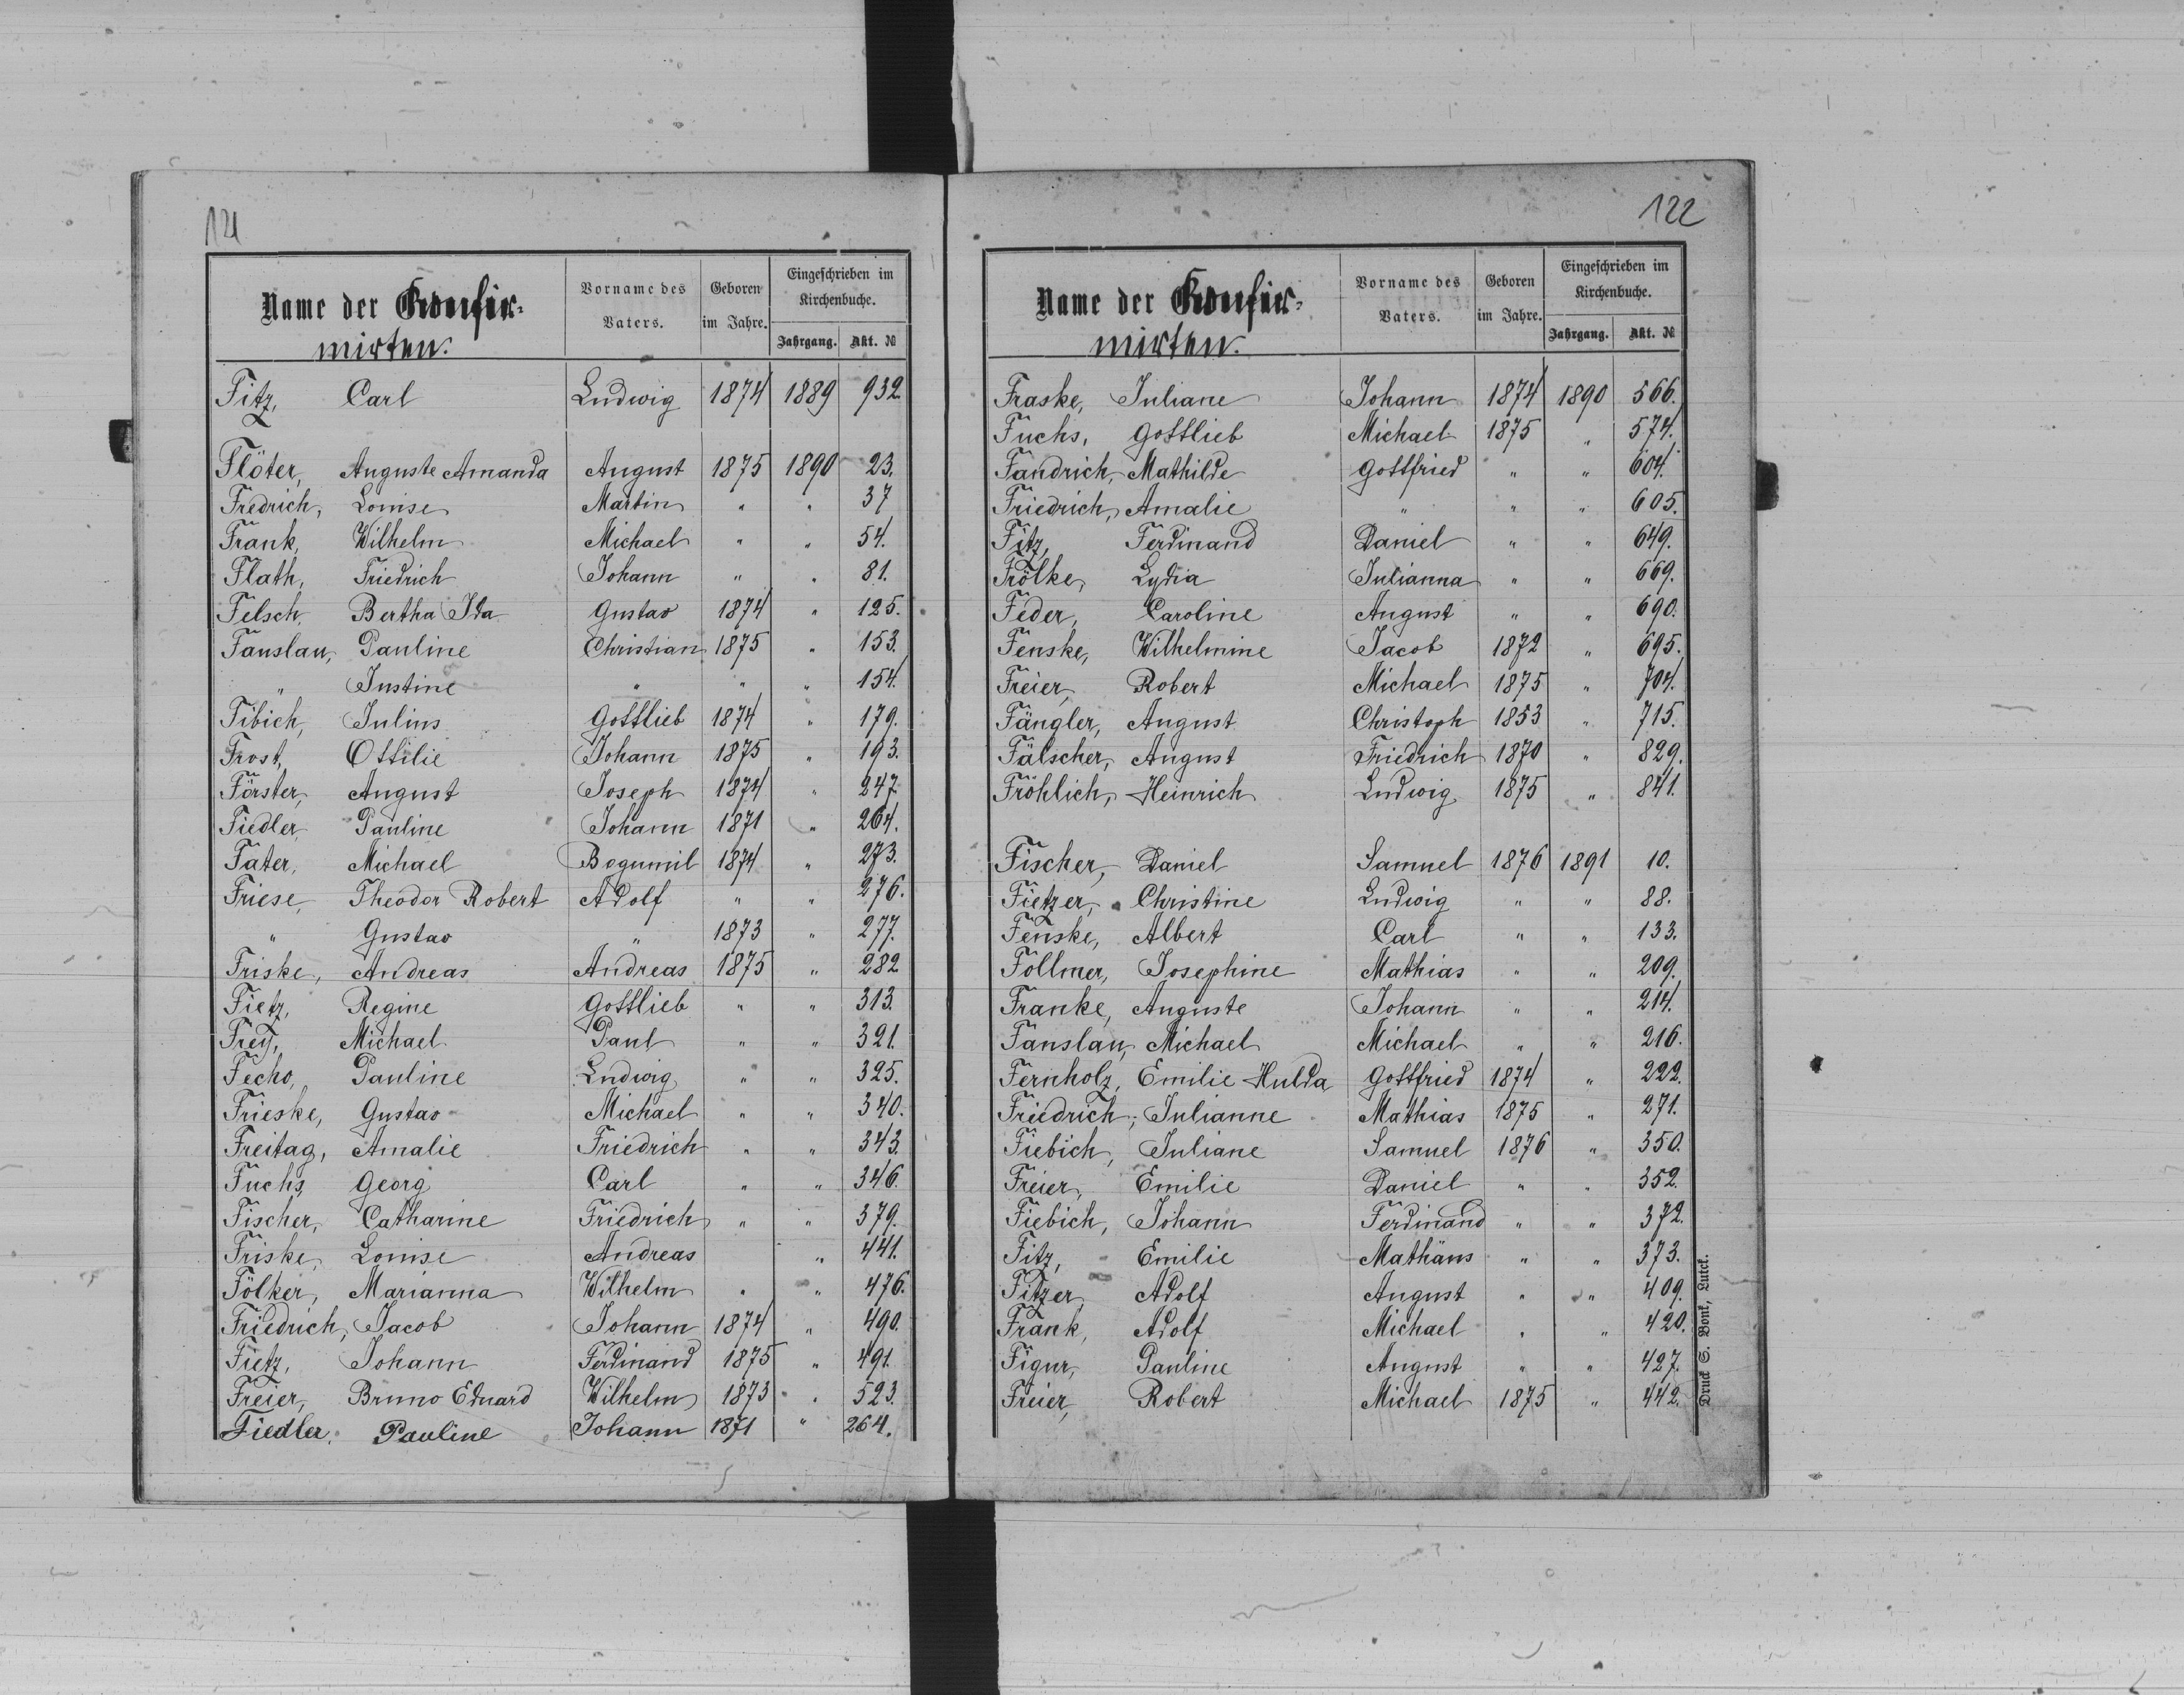 121
Name der Konfir-
mirten.
Vorname des Vaters.
Geboren im Jahre.
Eingeschrieben im Kirchenbuche.
Jahrgang. Akt. №
Fitz, Carl Ludwig 1874 1889 932
Flöter, Auguste Amanda August 1875 1890 23.
Fredrich, Louise Martin " " 37
Frank, Wilhelm Michael " " 54.
Flath, Friedrich Johann " " 81.
Felsch, Bertha Ida Gustav 1874 " 125.
Fanslau, Pauline Christian 1875 " 153.
" Justine " " " 154.
Fibich, Julius Gottlieb 1874 " 179.
Frost, Ottilie Johann 1875 " 193.
Förster, August Joseph 1874 " 247
Fiedler, Pauline Johann 1871 " 264.
Fater, Michael Bogumil 1874 " 273.
Friese, Theodor Robert Adolf " " 276.
" Gustav " 1873 " 277.
Friske, Andreas Andreas 1875 " 282
Fietz, Regine Gottlieb " " 313.
Frey, Michael Paul " " 321.
Fecho, Pauline Ludwig " " 325.
Frieske, Gustav Michael " " 340.
Freitag, Amalie Friedrich " " 343.
Fuchs, Georg Carl " " 346.
Fischer, Catharine Friedrich " " 379.
Friske, Louise Andreas " 441.
Fölker, Marianna Wilhelm " " 476.
Friedrich, Jacob Johann 1874 " 490.
Fietz, Johann Ferdinand 1875 " 491.
Freier, Bruno Eduard Wilhelm 1873 " 523.
Fiedler, Pauline Johann 1871 " 264.
122
Name der Konfir-
mirten.
Vorname des Vaters.
Geboren im Jahre.
Eingeschrieben im Kirchenbuche.
Jahrgang. Akt. №
Fraske, Juliane Johann 1874 1890 566.
Fuchs, Gottlieb Michael 1875 " 574.
Fandrich, Mathilde Gottfried " " 604.
Friedrich, Amalie " " " 605.
Fitz, Ferdinand Daniel " " 649.
Frölke, Lydia Julianna " " 669.
Feder, Caroline August " " 690.
Fenske, Wilhelmine Jacob 1872 " 695.
Freier, Robert Michael 1875 " 704.
Fängler, August Christoph 1853 " 715.
Fälscher, August Friedrich 1870 " 829.
Fröhlich, Heinrich Ludwig 1875 " 841.
Fischer, Daniel Samuel 1876 1891 10.
Fietzer, Christine Ludwig " " 88.
Fenske, Albert Carl " " 133.
Follmer, Josephine Mathias " " 209.
Franke, Auguste Johann " " 214.
Fanslau, Michael Michael " " 216.
Fernholz, Emilie Hulda Gottfried 1874 " 222.
Friedrich, Julianne Mathias 1875 " 271.
Fiebich, Juliane Samuel 1876 " 350.
Freier, Emilie Daniel " " 352.
Fiebich, Johann Ferdinand " " 372.
Fitz, Emilie Mathäus " " 373.
Fitzer, Adolf August " " 409.
Frank, Adolf Michael " " 420.
Figur, Pauline August " " 427.
Freier, Robert Michael 1875 " 442.
Druck S. Bonk, Lutck.